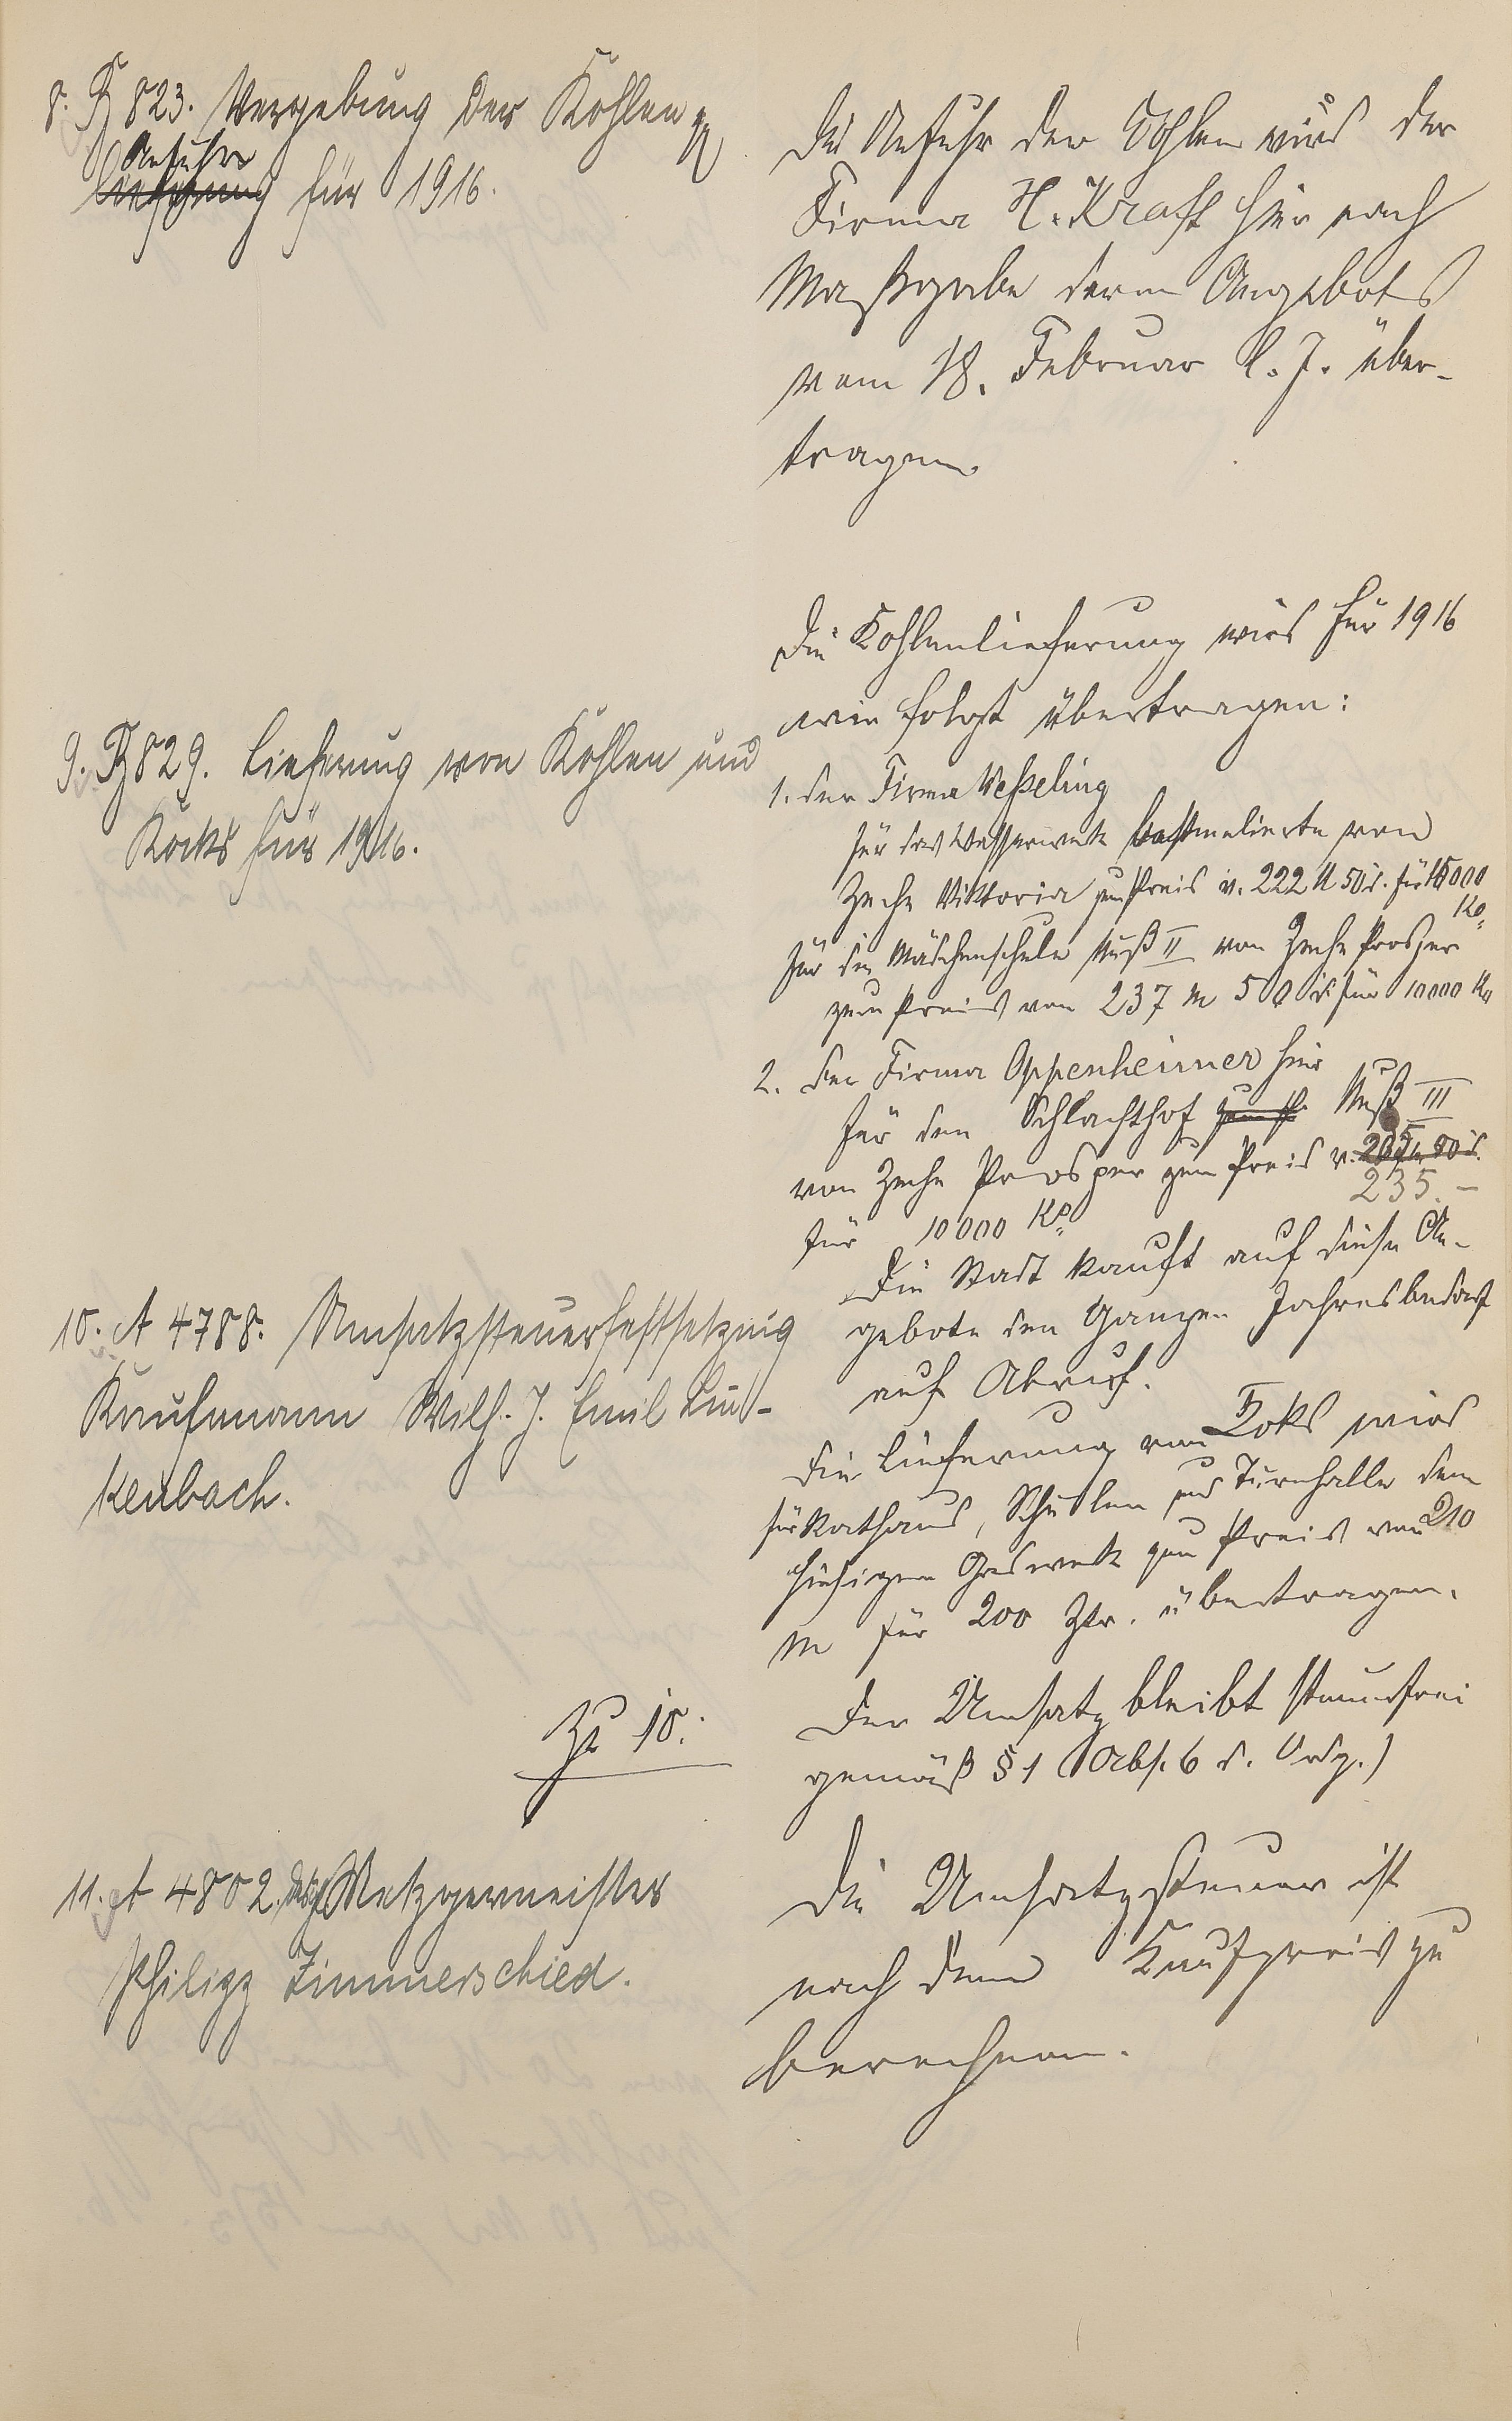 8. B 823. Vergebung der Kohlen
Anfuhr
lieferung für 1916.
Die Anfuhr der Kohlen wird der
Firma H. Kraft hier nach
Maßgabe deren Angebots
vom 18. Februar l. J. über-
tragen.
9. B 829. Lieferung von Kohlen und
Koks für 1916.
Die Kohlenlieferung wird für 1916
wie folgt übertragen:
1. der Firma Weßeling
für das Wasserwerk bestmelierte von
Zeche Viktoria zum Preis v. 222 M 50 d. für 15000
Ko.
Für die Mädchenschule Nuß II von Zeche Prosper
zum Preis von 237 M 50 d. für 10000 Ko
2. der Firma Oppenheimer hier
für den Schlachthof zum Pr Nuß III
von Zeche Prosper zum Preis v.
235.–
für 10000 Ko.
Die Stadt kauft auf diese An-
gebote den ganzen Jahresbedarf
auf Abruf.
Die Lieferung von Koks wird
für Rathaus, Schulen und Turnhalle dem
hiesigen Gaswerk zum Preis von 210
M für 200 Ztr. übertragen.
10. A 4788. Umsatzsteuerfestsetzung
Kaufmann Wilh. J. Emil Lin-
kenbach.
Zu 10.:
Der Umsatz bleibt steuerfrei
gemäß § 1 (Abs. 6 d. Ordg.)
11. A 4802. Metzgermeister
Philipp Zimmerschied.
Die Umsatzsteuer ist
nach dem Kaufpreis zu
berechnen.